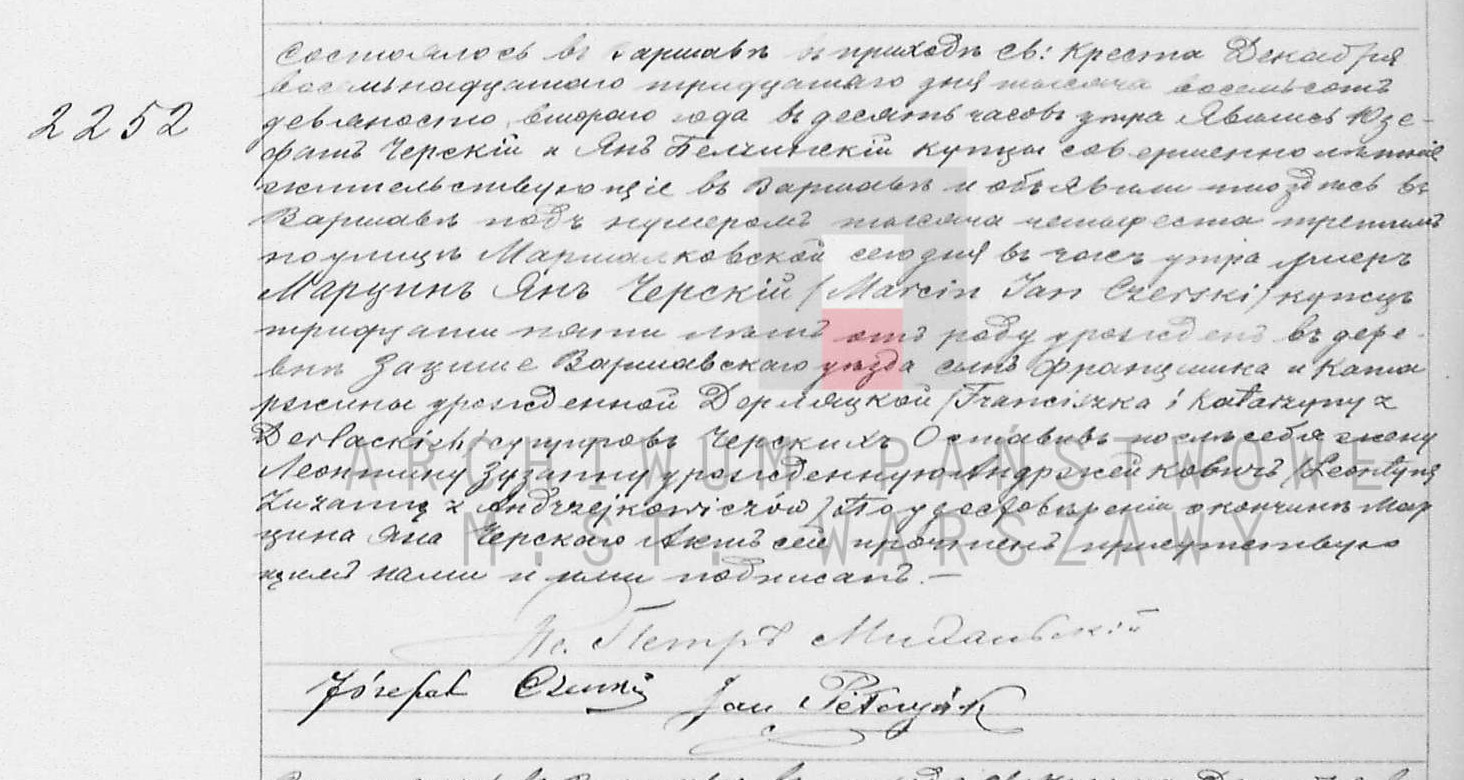 состоялось въ Варшавѣ въ приходѣ Св: Креста Декабря
восемнадцатаго тридцатаго дня тысяча восемьсотъ
девяносто втораго года въ десять часовъ утра Явились Юзе-
фатъ Черскій и Янъ купцы совершеннолѣтніе
жительствующіе въ Варшавѣ и объявили что здѣсь въ
Варшавѣ подъ нумеромъ тысяча четыреста третьимъ
по улицѣ Маршалковской сегодня въ часъ утра умеръ
Марцинъ Янъ Черскій /Marcin Jan Czerski/ купецъ
тридцати пяти лѣтъ отъ роду урожденъ въ дере-
внѣ Зацише Варшавскаго уѣзда сынъ Францишка и Ката
ржины урожденной Дерляцкой /Franciszka i Katarzyny z
Derlackich/ супруговъ Черскихъ Оставивъ послѣ себя жену
Леонтину Зузанну урожденную Андржейковичъ /Leontynę
Zuzannę z Andrzejkowiczów/ По удостовѣреніи о кончинѣ Мар
цина Яна Черскаго Актъ сей прочтенъ присутствую
щимъ нами и ими подписанъ.—
2252
Кс. Петръ
Józefat Czerski Jan
ARCHIWUM PAŃSTWOWE
M.ST. WARSZAWY